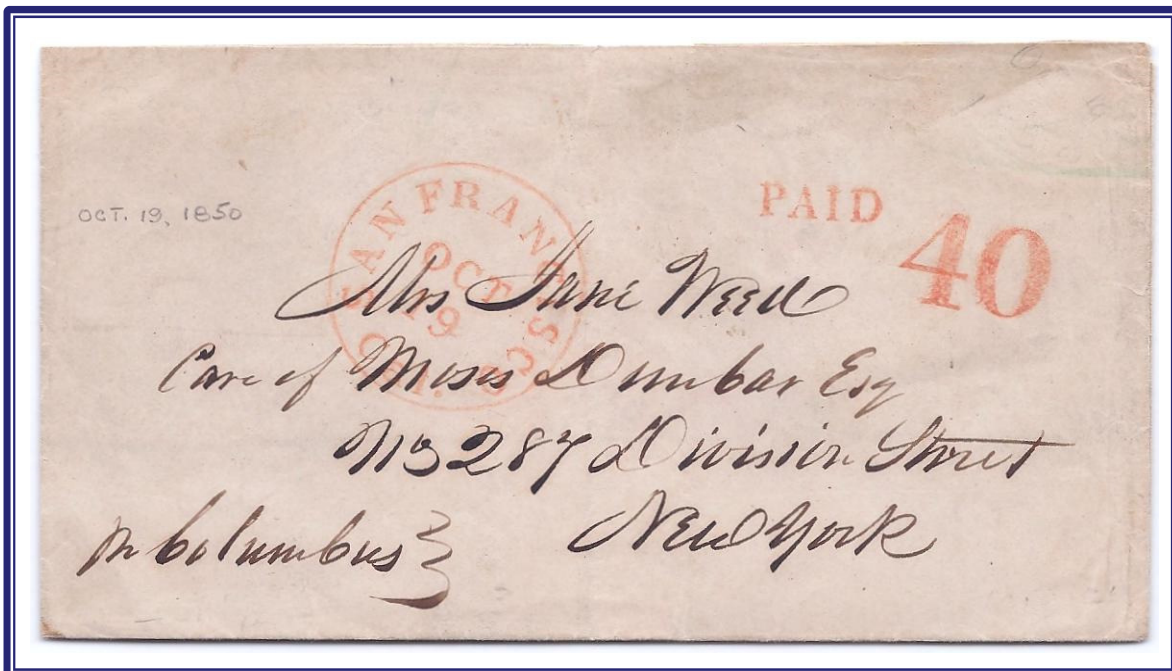 OCT. 19, 1850
SAN FRANCISCO CAL.
OCT
19
PAID
40
Mrs Jane Weed
Care of Moses Dunbar Esq
No 287 Division Street
New York
pr Columbus